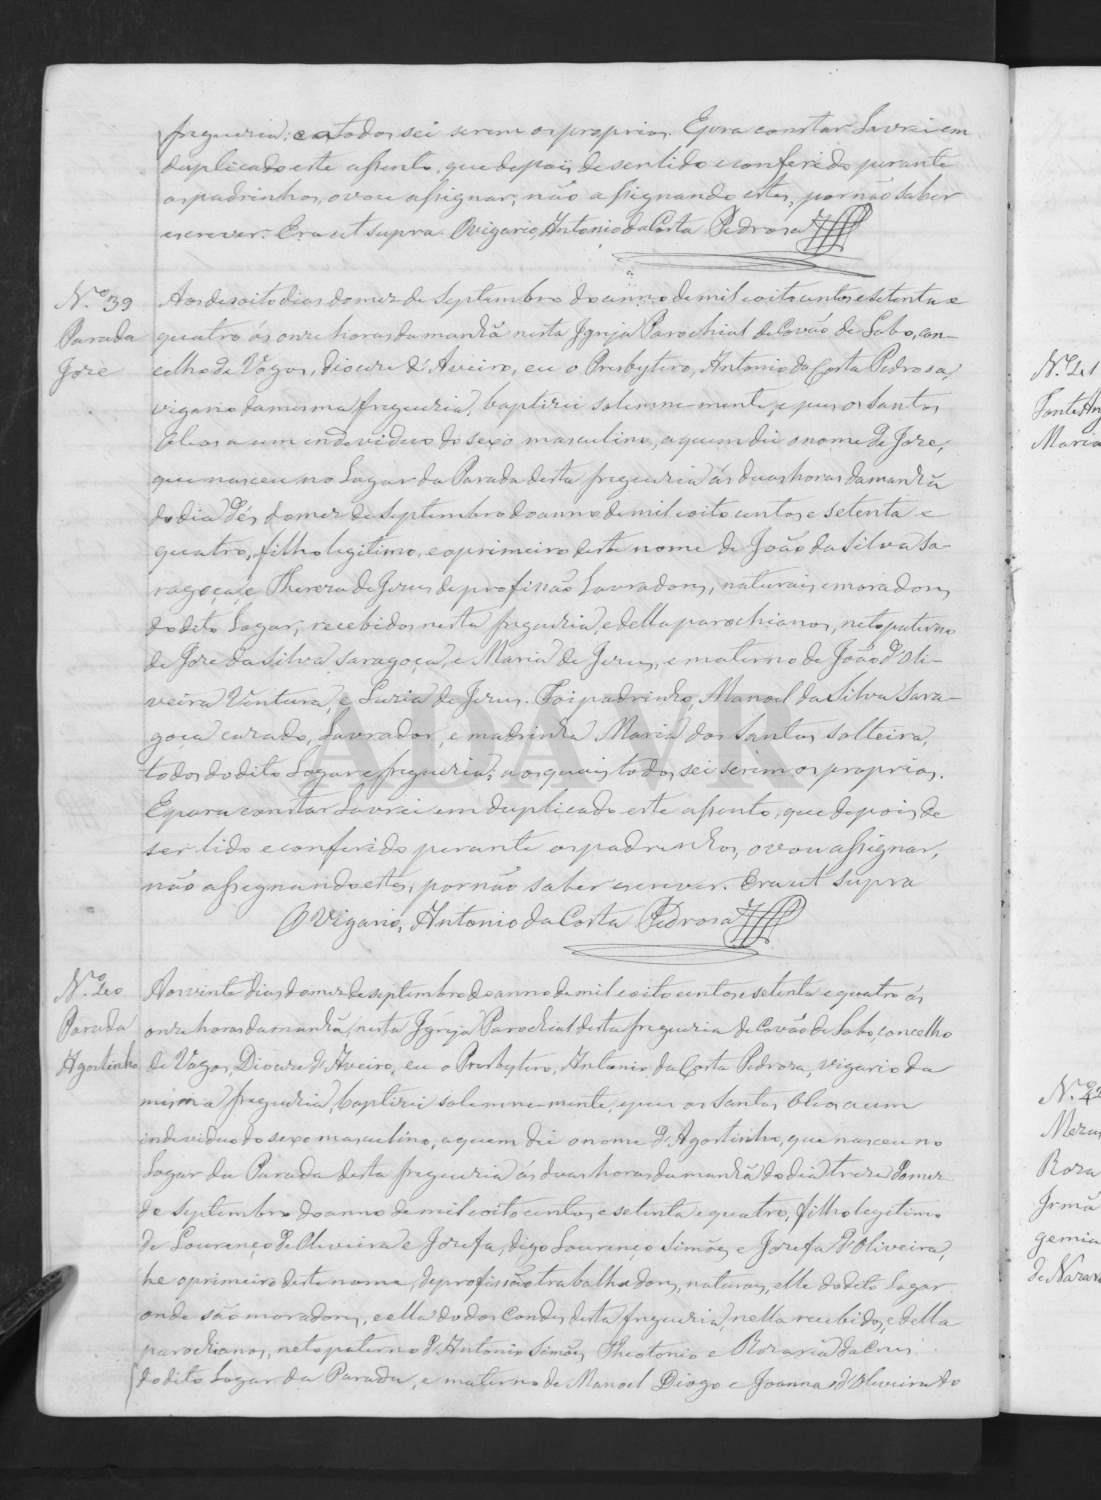 freguezia; e a todos sei serem os proprios. E para constar lavrei em
duplicado este assento, que depois de ser lido e conferido perante
os padrinhos, o vou assignar, não assignando estes, por não saber
escrever. Era ut supra. O vigario, Antonio da Costa Pedrosa
N.º 39
Parada
Joze
Aos desoito dias do mez de Septembro do anno de mil oito centos e setenta e
quatro ás onze horas da manhã nesta Igreja Parochial de Covão de Lobo, con-
celho de Vagos, diocese d'Aveiro, eu o Presbytero, Antonio da Costa Pedrosa,
vigario da mesma freguezia, baptizei solemne-mente, e puz os Santos
Oleos a um individuo do sexo masculino, a quem dei o nome de Joze,
que nasceu no Lugar da Parada desta freguezia ás duas horas da manhã
do dia dés do mez de Septembro do anno de mil oito centos e setenta e
quatro, filho legitimo, e o primeiro deste nome de João da Silva Sa-
ragoça, e Thereza de Jezus de profissão Lavradores, naturais e moradores
do dito Lugar, recebidos nesta freguezia, e della parochianos, neto paterno
de Joze da Silva Saragoça, e Maria de Jezus, e materno de João d'Oli-
veira Ventura, e Luzia de Jezus. Foi padrinho, Manoel da Silva Sara-
goça cazado, Lavrador, e madrinha Maria dos Santos solteira,
todos do dito Lugar e freguezia; a os quais todos sei serem os proprios.
E para constar Lavrei em duplicado este assento, que depois de
ser lido e conferido perante os padrinhos, o vou assignar,
não assignando estes, por não saber escrever. Era ut supra
O Vigario, Antonio da Costa Pedrosa
N.º 40
Parada
Agostinho
Aos vinte dias do mez de septembro do anno de mil oito centos e setenta e quatro ás
onze horas da manhã, nesta Igreja Parochial desta freguezia de Covão de Lobo, concelho
de Vagos, Diocese d'Aveiro, eu o Presbytero, Antonio da Costa Pedrosa, vigario da
mesma freguezia, baptizei solemne-mente, e puz os Santos Oleos a um
individuo do sexo masculino, a quem dei o nome d'Agostinho, que nasceu no
Lugar da Parada desta freguezia ás duas horas da manhã do dia treze do mez
de Septembro do anno de mil oito centos e setenta e quatro, filho legitimo
de Lourenço d'Oliveira e Jozefa, digo Lourenço Simões, e Jozefa d'Oliveira,
he o primeiro deste nome, de profissão trabalhadores, naturaes, elle do dito Lugar
onde são moradores, e ella do dos Condes desta freguezia, nella recebidos, e della
parochianos, neto paterno d'Antonio Simões Theotonio e Rozaria da Cruz
do dito Lugar da Parada, e materno de Manoel Diogo e Joanna d'Oliveira do
N.º 41
Maria
N.º 42
Roza
Irmã
ADAVR